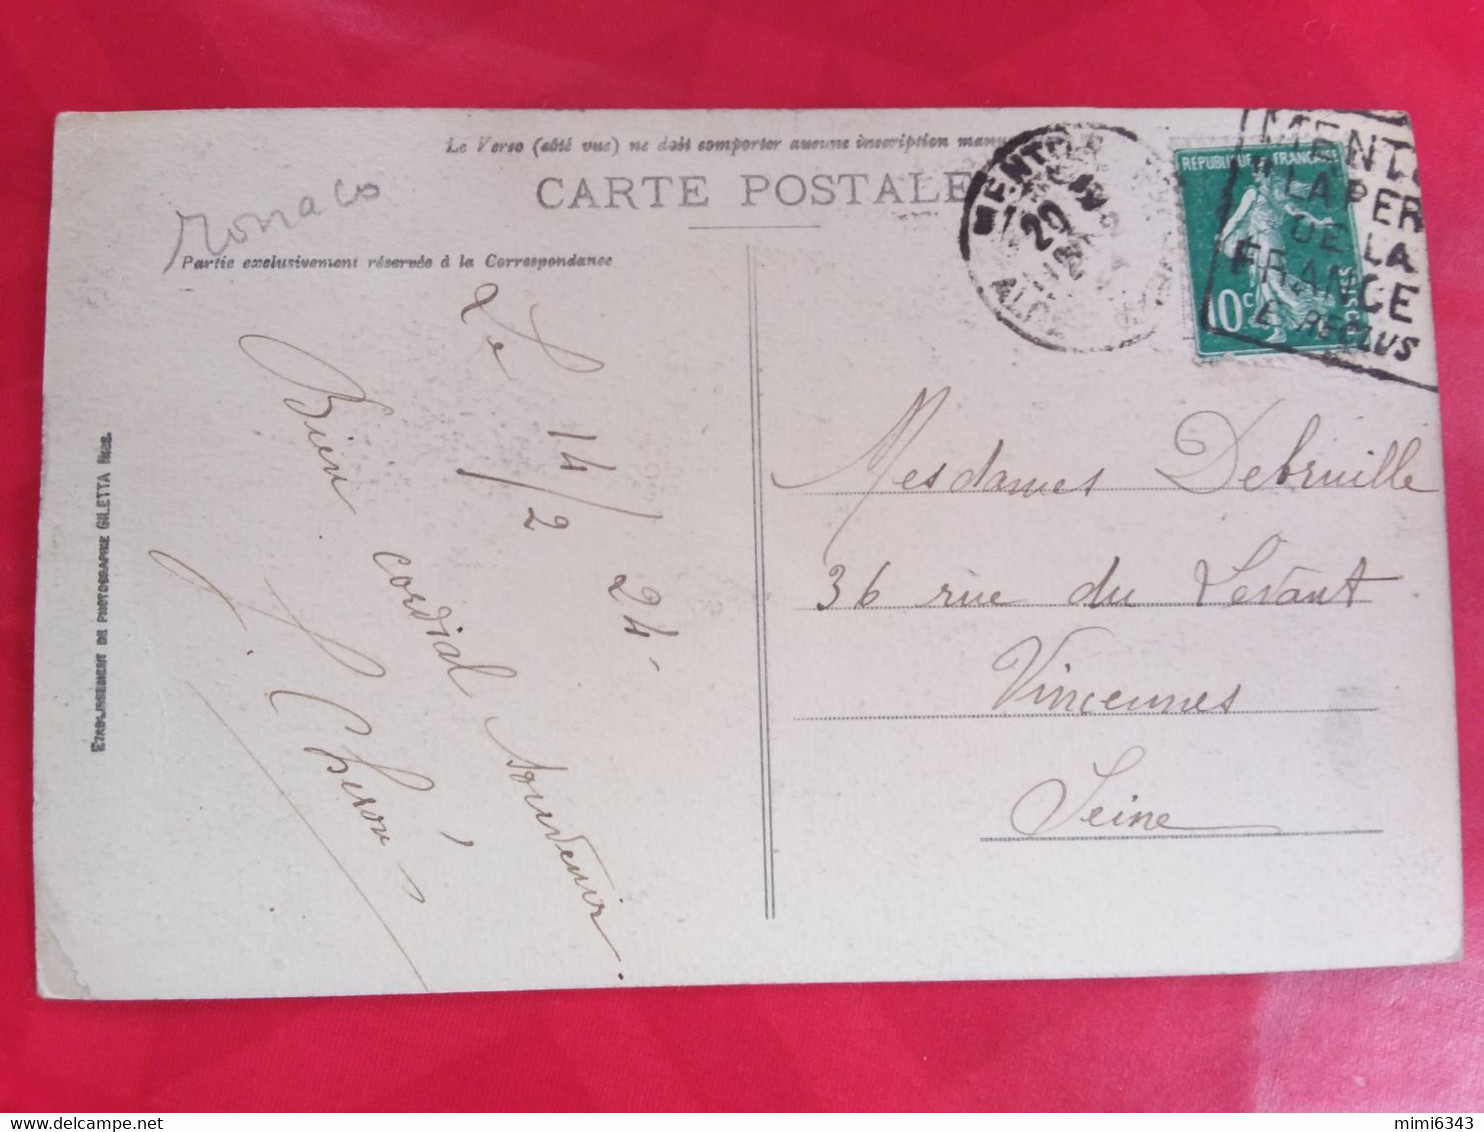 Le Verso (côté vue) ne doit comporter aucune inscription manu
CARTE POSTALE
Monaco
Partie exclusivement réservée à la Correspondance
Le 14/2 24-
Bien cordial souvenir.
J. Chéron
ETABLISSEMENT DE PHOTOGRAPHIE GILETTA Nice.
MENTON
20
REPUBLIQUE FRANCAISE
10c
POSTES
MENTO
LA PER
DE LA
FRANCE
E. RECLUS
Mesdames Debruille
36 rue du Levant
Vincennes
Seine
mimi6343